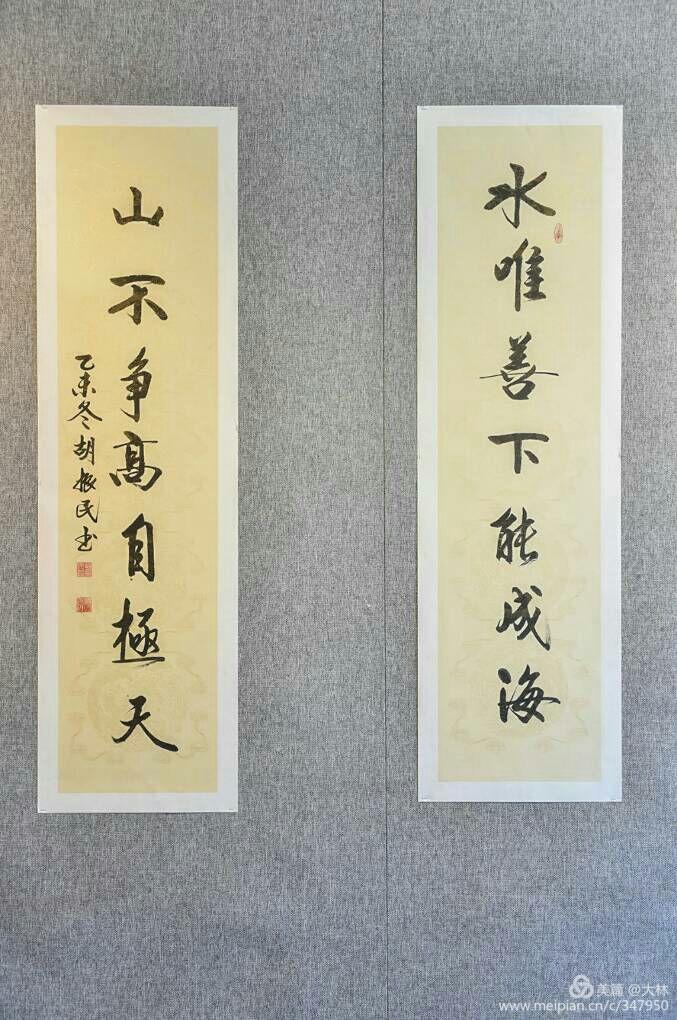 水唯善下能成海
山不争高自極天
乙未冬胡振民书
美篇 @大林
www.meipian.cn/c/347950